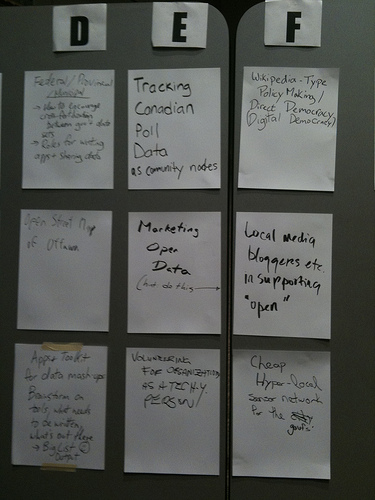 D
E
F
Federal/Provincial
/Municipal
→ How to encourage
cross-pollination
between gov't data
sets
→ Rules for writing
apps + sharing data
Tracking
Canadian
Poll
Data
as community nodes
Wikipedia-Type
Policy Making/
Direct Democracy
(Digital Democracy)
Open Street Map
of Ottawa
Marketing
Open
Data
(but do this →
Local media
bloggers etc.
in supporting
"open"
Apps Toolkit
for data mash ups
Brainstorm on
tools, what needs
to be written,
what's out there
→ Big List
Output
VOLUNTEERING
FOR ORGANIZATIONS
AS A TECH-Y
PERSON/
Cheap
Hyper-local
sensor network
for the
gov's.